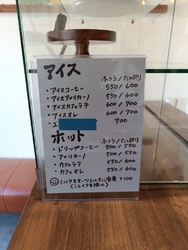 アイス
ふつう/たっぷり
・アイスコーヒー 550/600
・アイスアメリカーノ 550/600
・アイスカフェラテ 600/700
・アイスオレ 600/700
・エ 700
ホット
ふつう/たっぷり
・ドリップコーヒー 500/550
・アメリカーノ 500/550
・カフェラテ 550/600
・カフェオレ 550/600
変更 +100